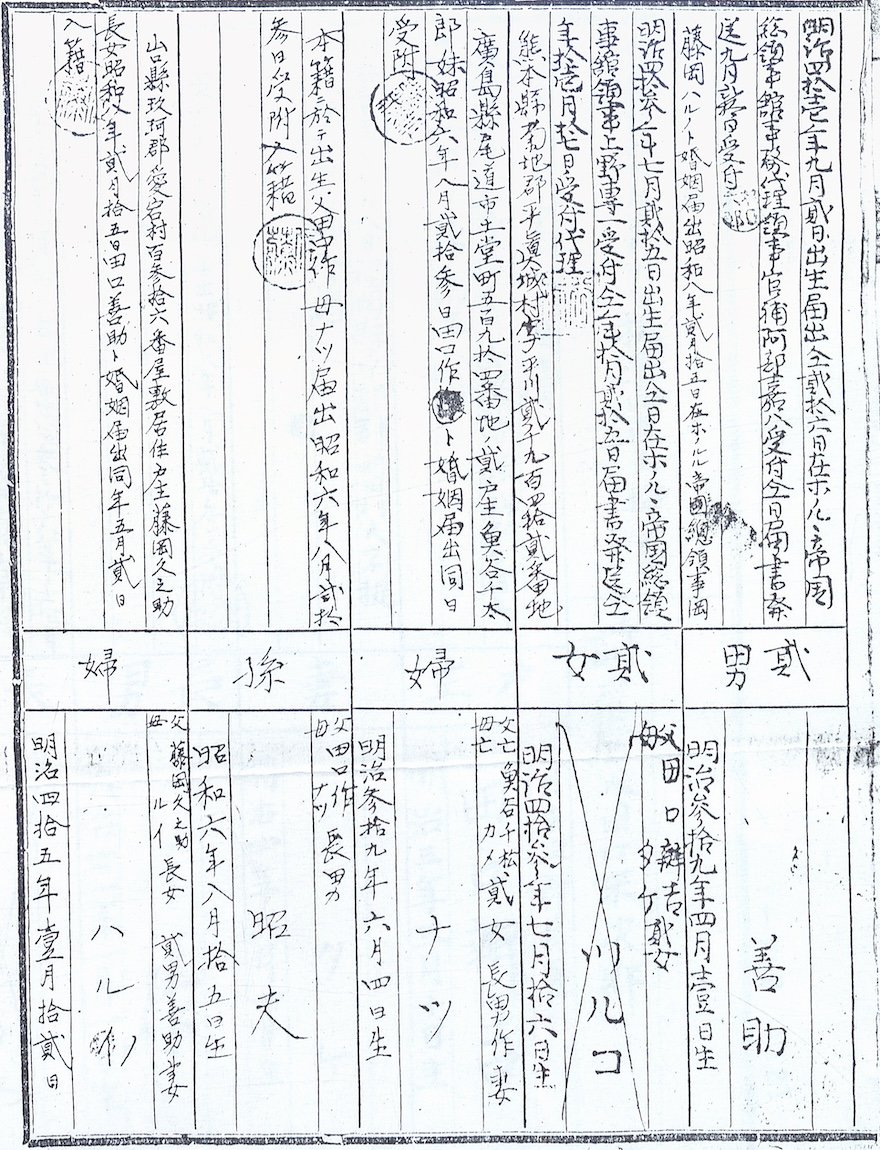 明治四拾壱年九月貳日出生届出仝貳拾六日在ホノルヽ帝国
総領事館事務代理領事官補阿部嘉八受付仝日届書発
送九月
日受付
藤岡ハルノト婚姻届出昭和八年貳月拾五日在ホノルル帝國總領事
貳男
明治参拾九年四月壹日生
善助
明治四拾参年七月貳拾五日出生届出仝日在ホノルヽ帝国総領
事館領事上野専一受付仝年拾月貳拾五日届書発送仝
年拾壱月拾七日受付
熊本縣菊地郡平真城村字平川貳千九百四拾貳番地
貳女
父田口辨吉
母タケ
貳女
ツルコ
明治四拾参年七月拾六日生
廣島縣尾道市土堂町五百九拾四番地ノ貳戸主魚谷千太
郎妹昭和六年八月貳拾参日田口作ト婚姻届出同日
受附
婦
父亡魚谷千松
母亡カメ
貳女
長男作妻
ナツ
明治参拾九年六月四日生
本籍ニ於テ出生父田口作母ナツ届出昭和六年八月貳拾
参日受附入籍
孫
父田口作
母ナツ
長男
昭夫
昭和六年八月拾五日生
山口縣玖珂郡愛宕村百参拾六番屋敷居住戸主藤岡久之助
長女昭和八年貳月拾五日田口善助ト婚姻届出同年五月貳日
入籍
婦
父藤岡久之助
母ルイ
長女
貳男善助妻
ハルノ
明治四拾五年壹月拾貳日